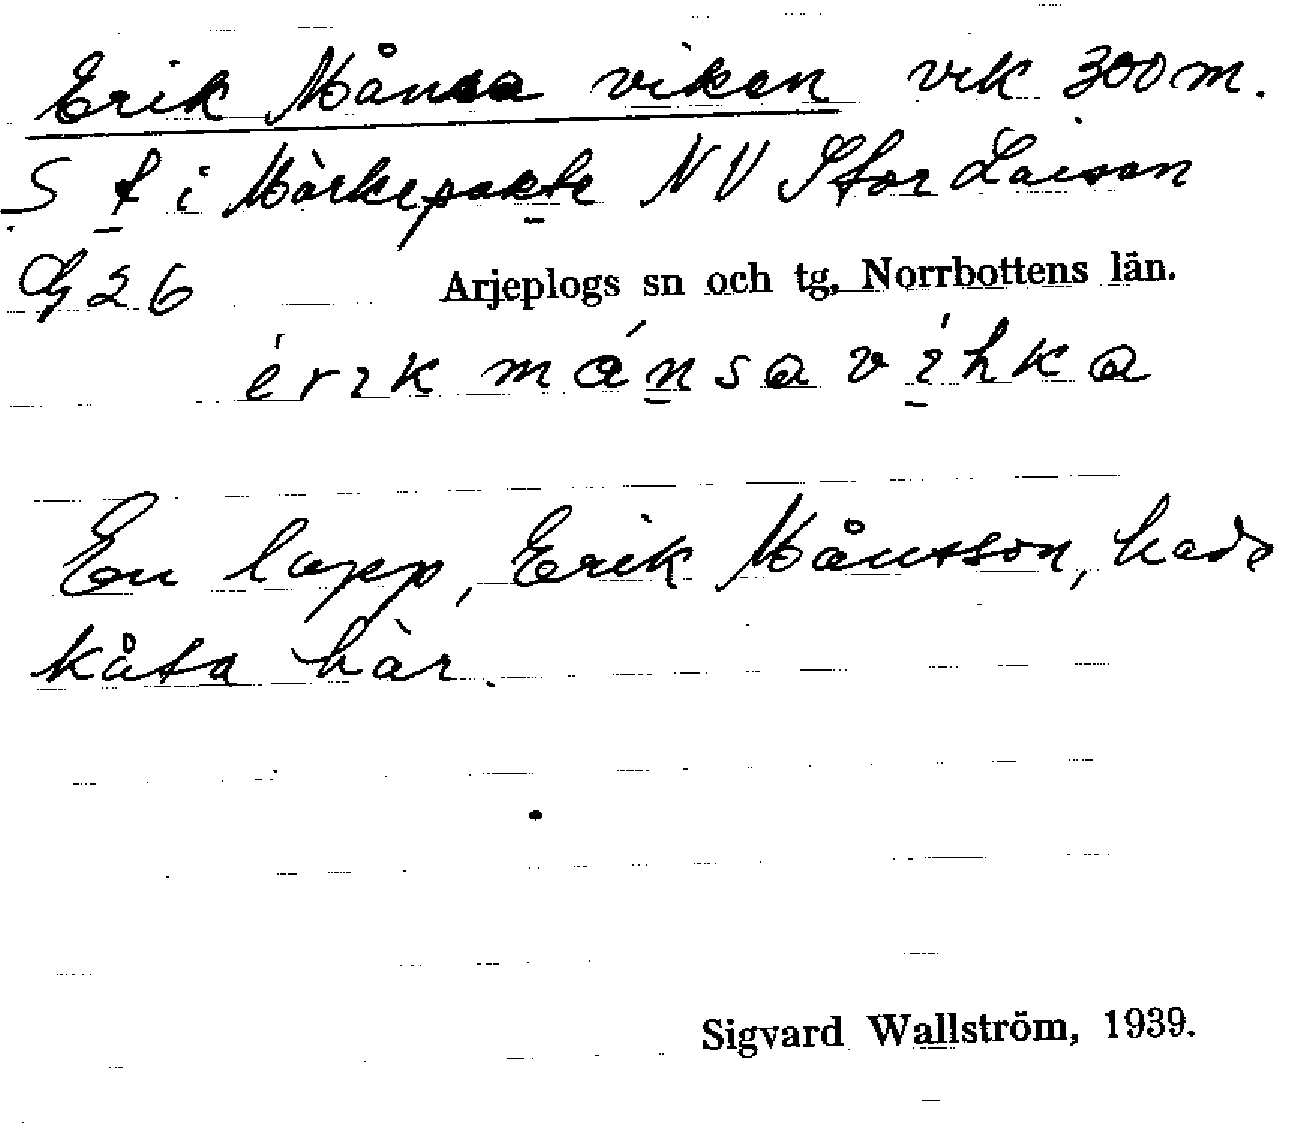 Erik Månsa viken vik 300 m.
S t i Mörkepakte NV Stor Laisan
G 26 Arjeplogs sn och tg, Norrbottens län.
érık mánsa víhka
En lapp, Erik Månsson, hade
kåta här.
Sigvard Wallström, 1939.